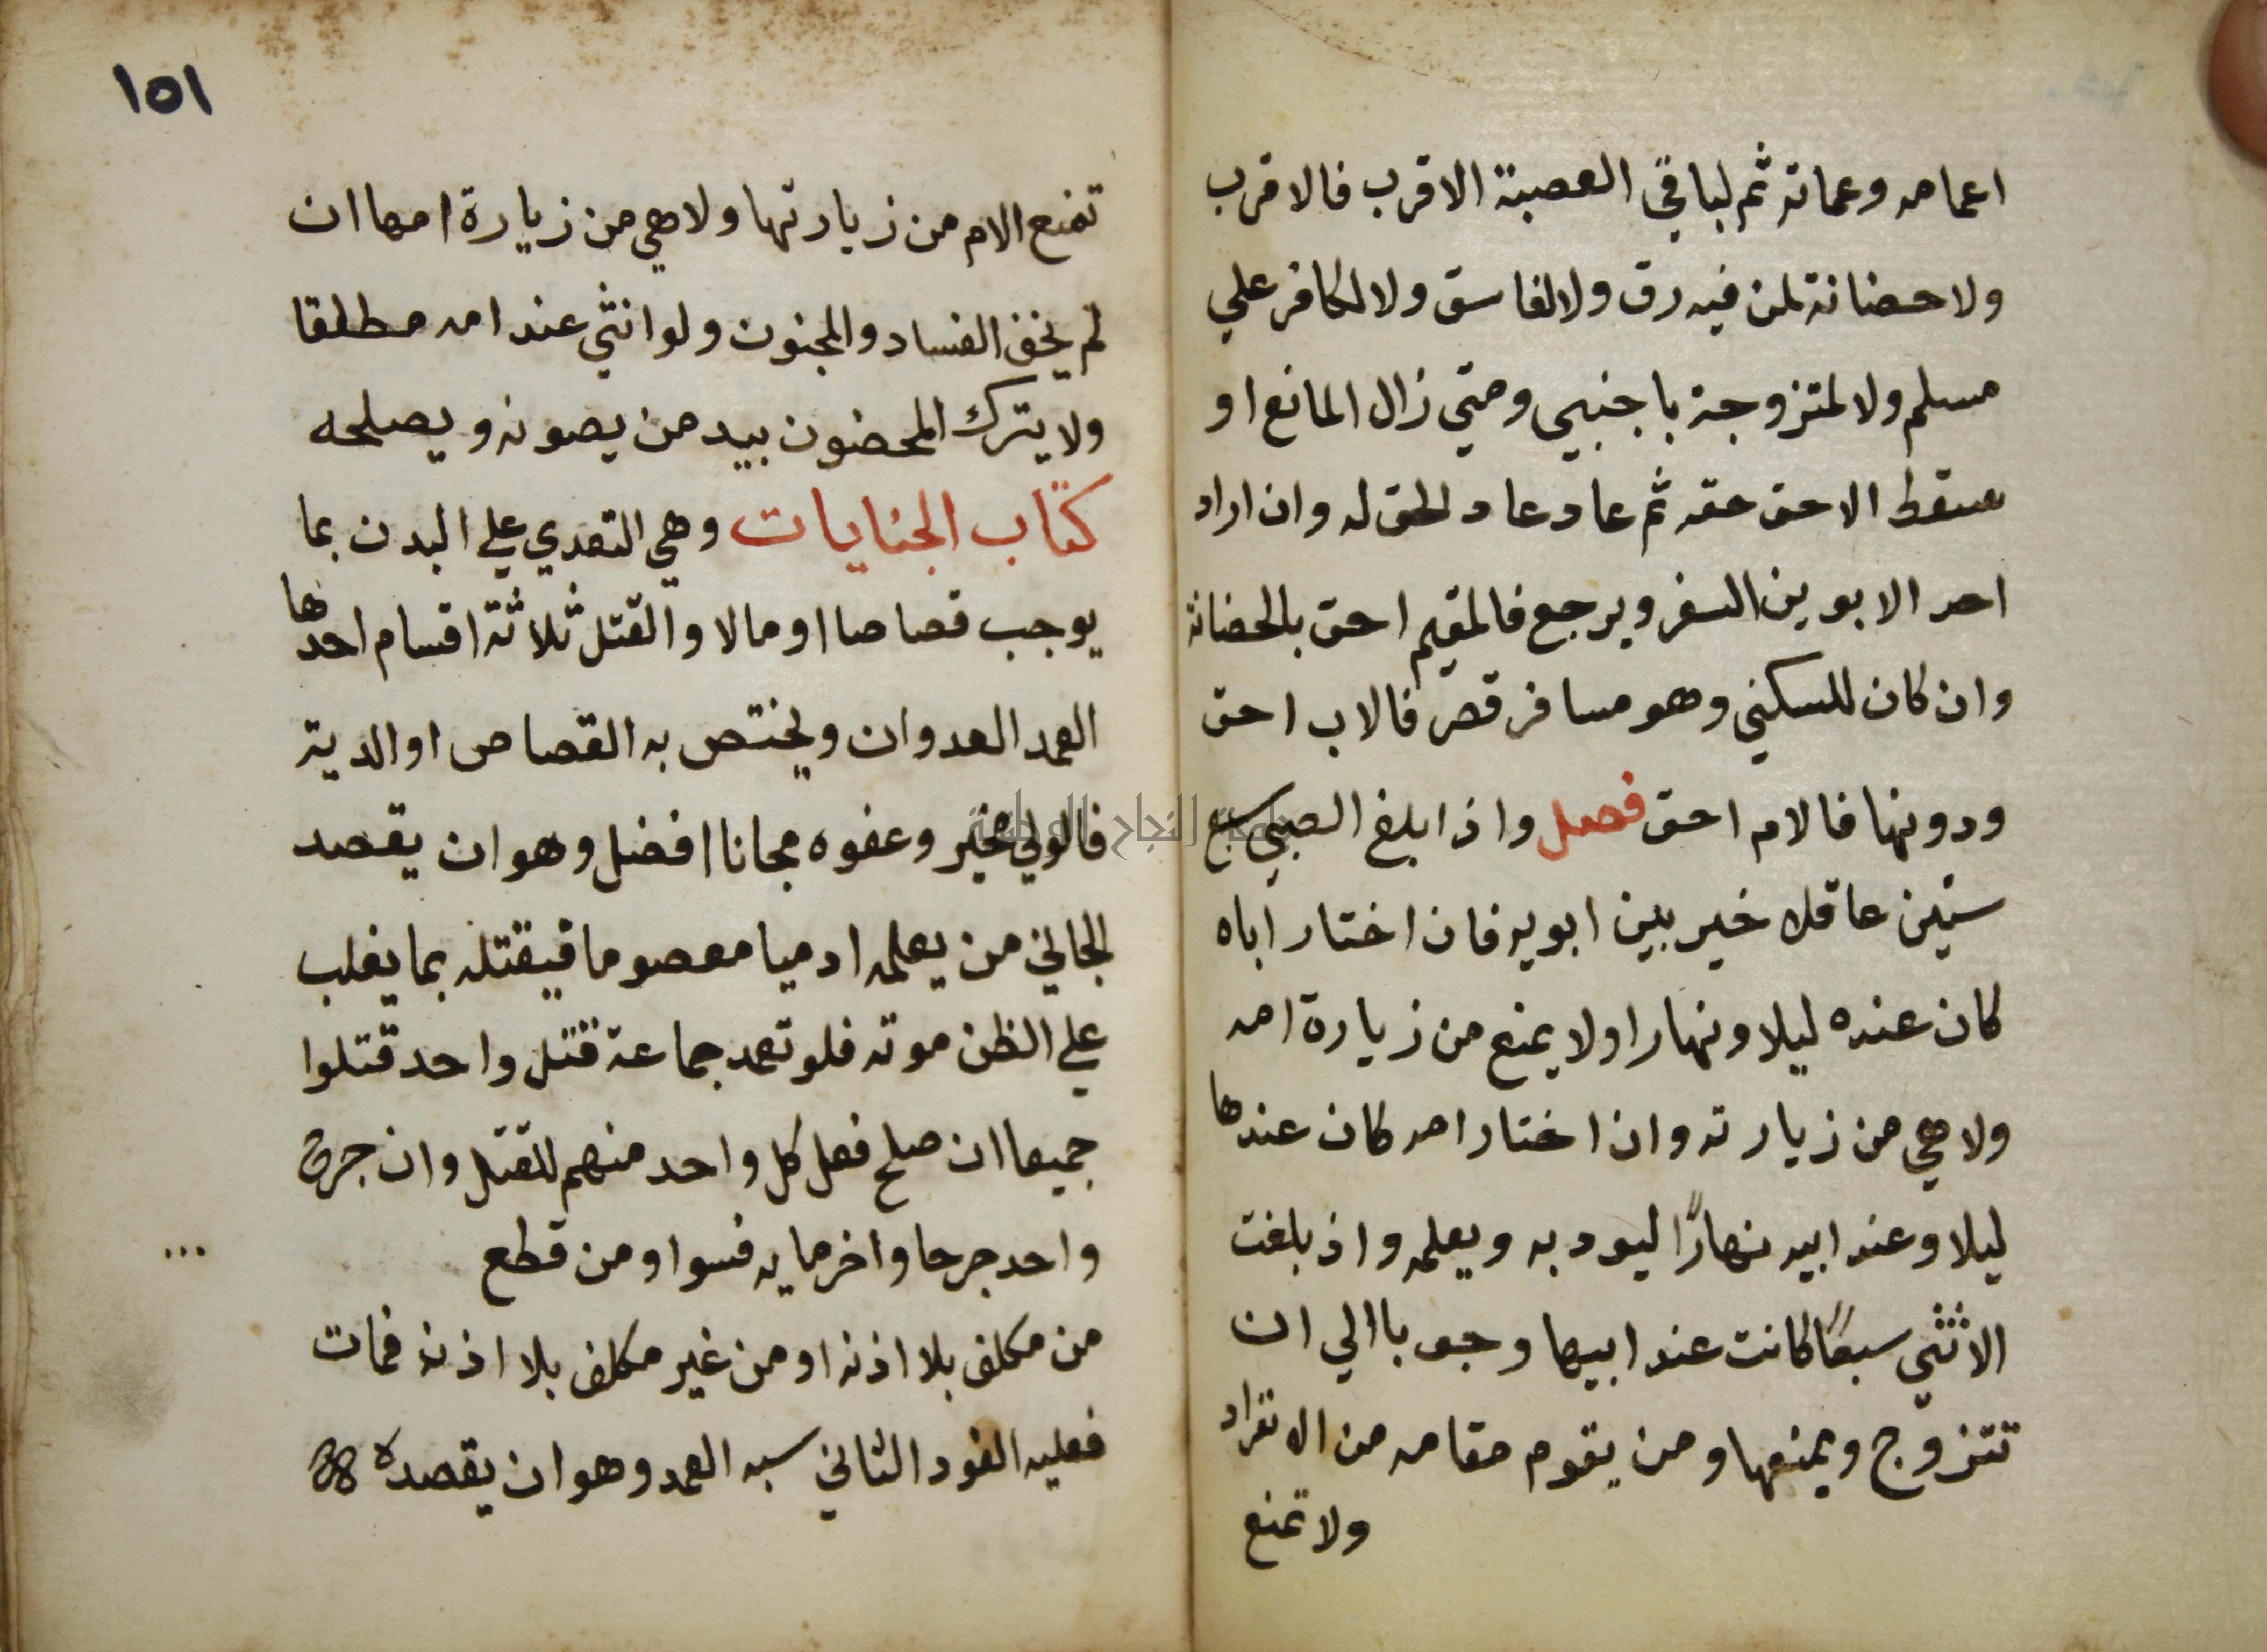 اعمامه وعماته ثم لباقي العصبة الاقرب فالاقرب
ولا حضانة لمن فيه رق ولا لفاسق ولا لكافر علي
مسلم ولا لمتزوجة باجنبي ومتي زال المانع او
سقط الاحق حقه ثم عاد عاد الحق له وان اراد
احد الابوين السفر ويرجع فالمقيم احق بالحضانة
وان كان للسكني وهو مسافر قصر فالاب احق
ودونها فالام احق فصل واذا بلغ الصبي سبع
سنين عاقلا خير بين ابويه فان اختار اباه
كان عنده ليلا ونهارا ولا يمنع من زيارة امه
ولا هي من زيارته وان اختار امه كان عندها
ليلا وعند ابيه نهارًا ليودبه ويعلمه واذ بلغت
الانثي سبعًا كانت عند ابيها وجوبا الي ان
تتزوج ويمنعها ومن يقوم مقامه من الانفراد
ولا تمنع
١٥١
تمنع الام من زيارتها ولا هي من زيارة امها ان
لم يخف الفساد والمجنون ولو انثي عند امه مطلقا
ولا يترك المحضون بيد من يصونه ويصلحه
كتاب الجنايات وهي التعدي علي البدن بما
يوجب قصاصا او مالا والقتل ثلاثة اقسام احدها
العمد العدوان ويختص به القصاص او الدية
فالولي مخير وعفوه مجانا افضل وهو ان يقصد
الجاني من يعلمه ادميا معصوما فيقتله بما يغلب
علي الظن موته فلو تعمد جماعة قتل واحد قتلوا
جميعا ان صلح فعل كل واحد منهم للقتل وان جرح
واحد جرحا واخر مايه فسوا ومن قطع
من مكلف بلا اذنه او من غير مكلف بلا اذنه فمات
فعليه القود الثاني سبه العمد وهو ان يقصده
جامعة النجاح الوطنية